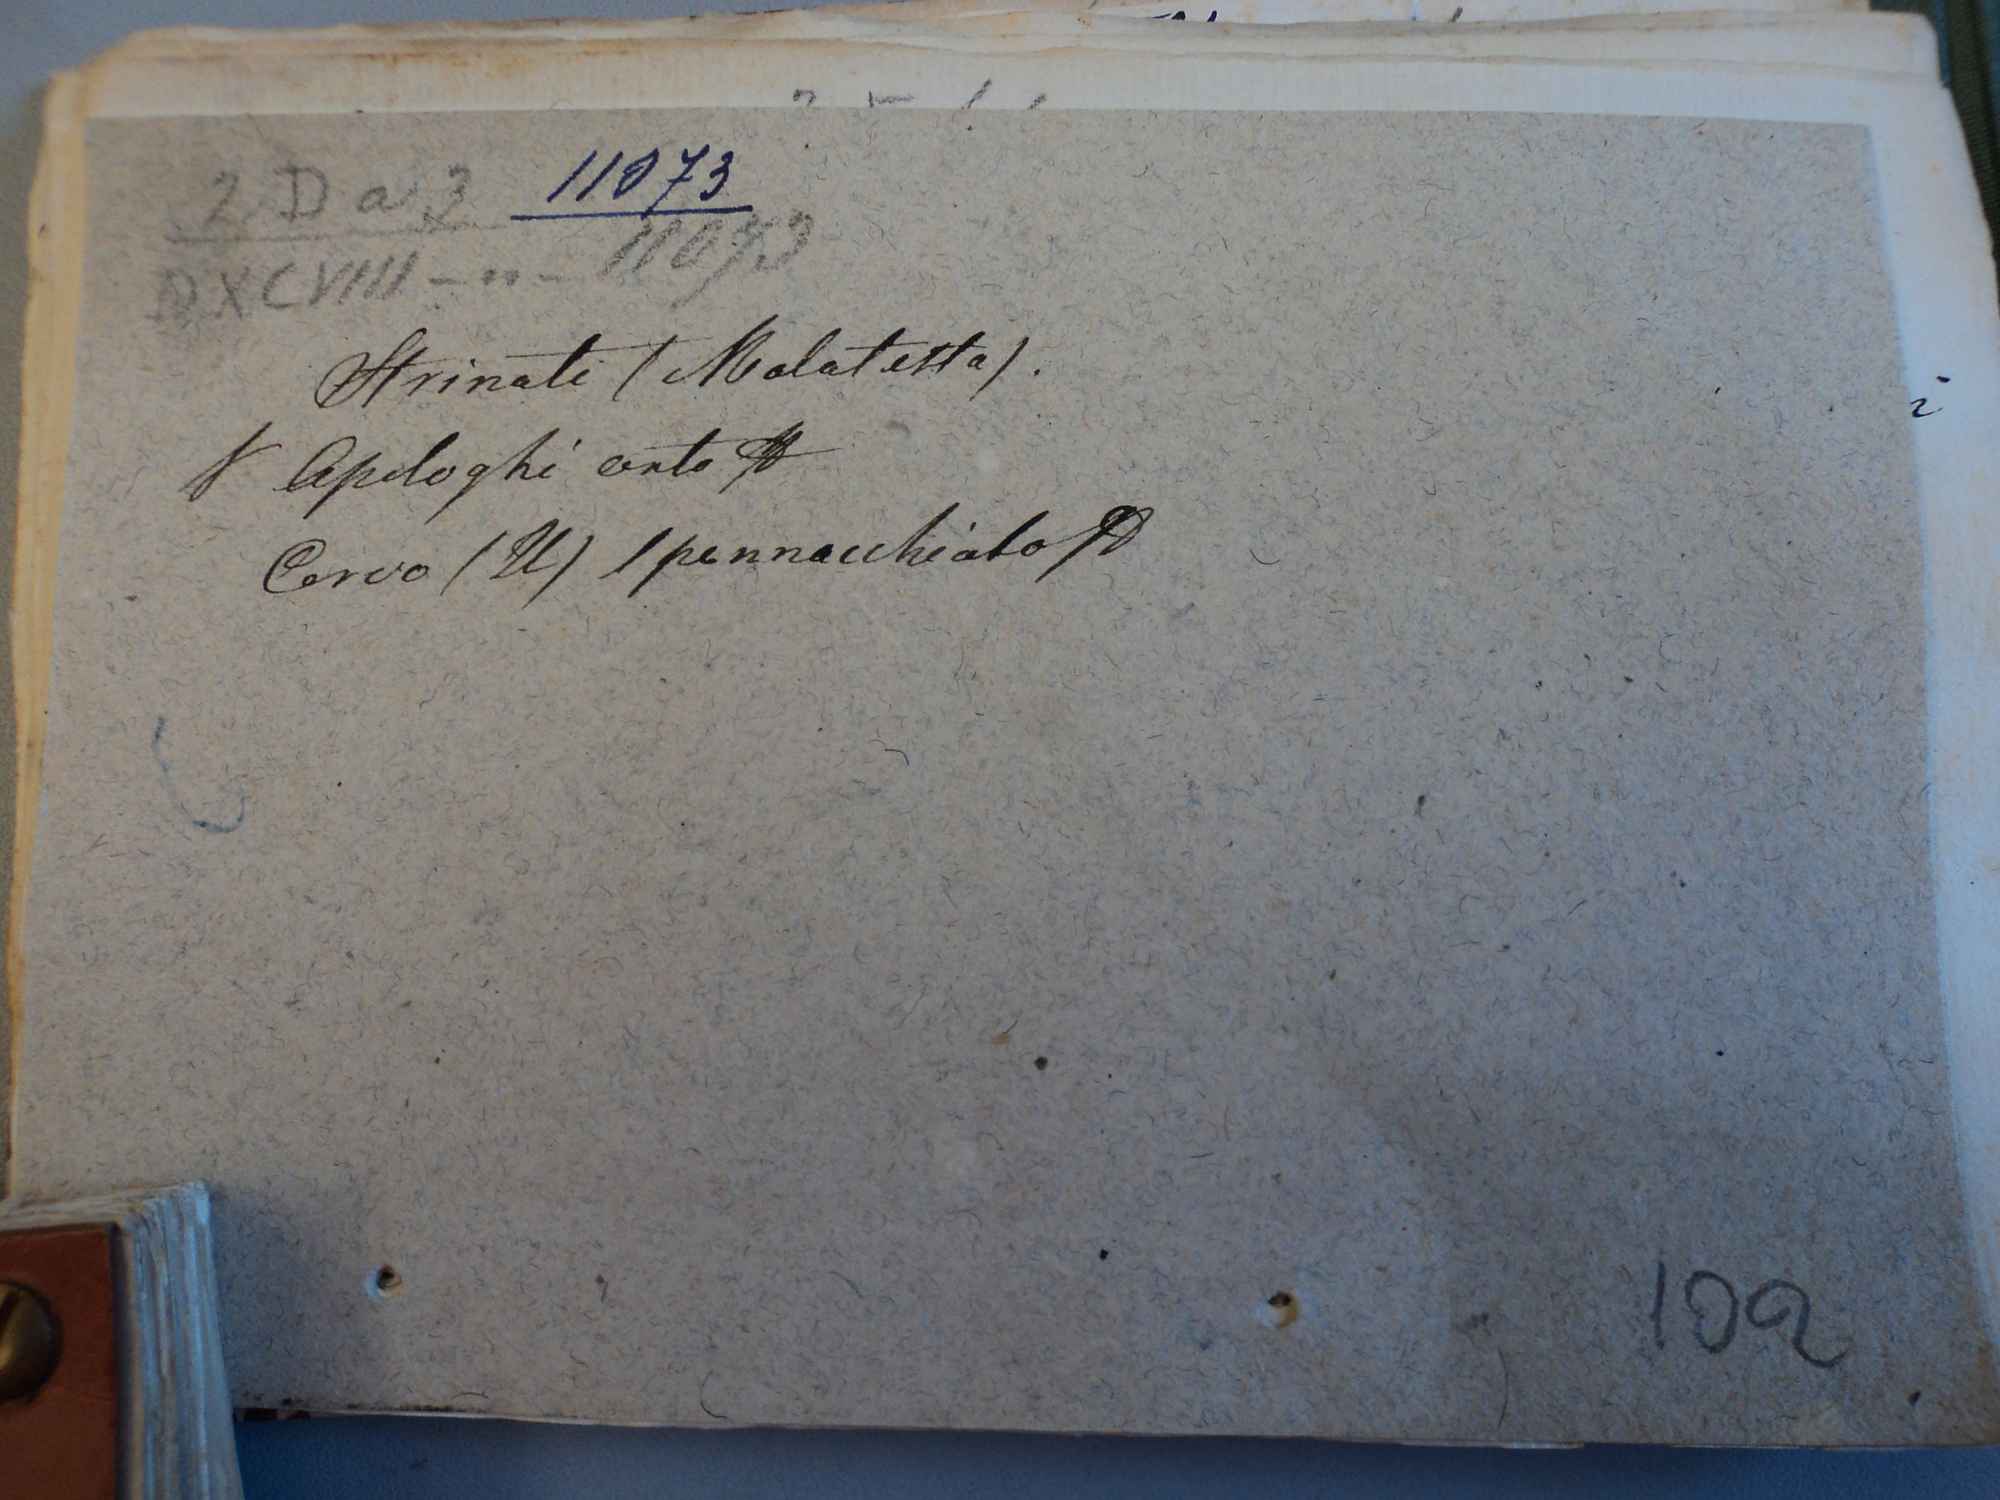 2 D a 3 11073
DXCVIIII - n - 11073
Strinati (Malatesta).
Apologhi cento
Corvo (Il) spennacchiato
102